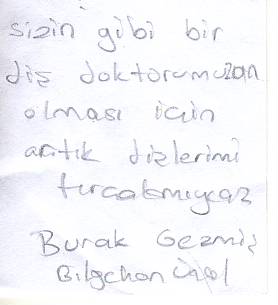 sizin gibi bir
diş doktorumuzun
olması için
artık dişlerimi
fırcalamıycaz
Burak Gezmiş
Bilgehan Ünal